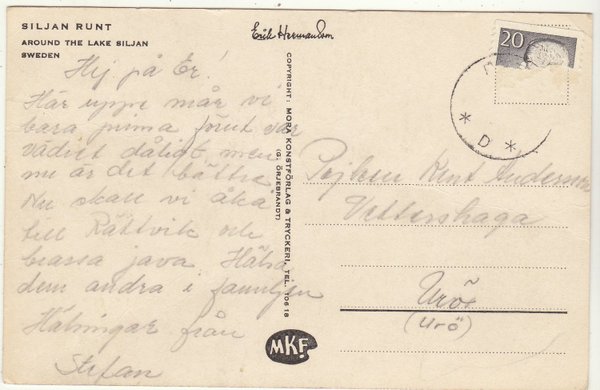 SILJAN RUNT
AROUND THE LAKE SILJAN
SWEDEN
Erik Hermansson
20
Hej på Er!
Här uppe mår vi
bara prima förut var
vädret dåligt men
nu är det bättre
Nu skall vi åka
till Rättvik och
java. Hälsa
dem andra i familjen
Hälsningar från
Stefan
COPYRIGHT: MORA KONSTFÖRLAG & TRYCKERI, TEL. 106 18
(G. ÖRJEBRANDT)
MKF
D
* D *
Pojken Kent Andersson
Vettershaga
Urö
(Urö)